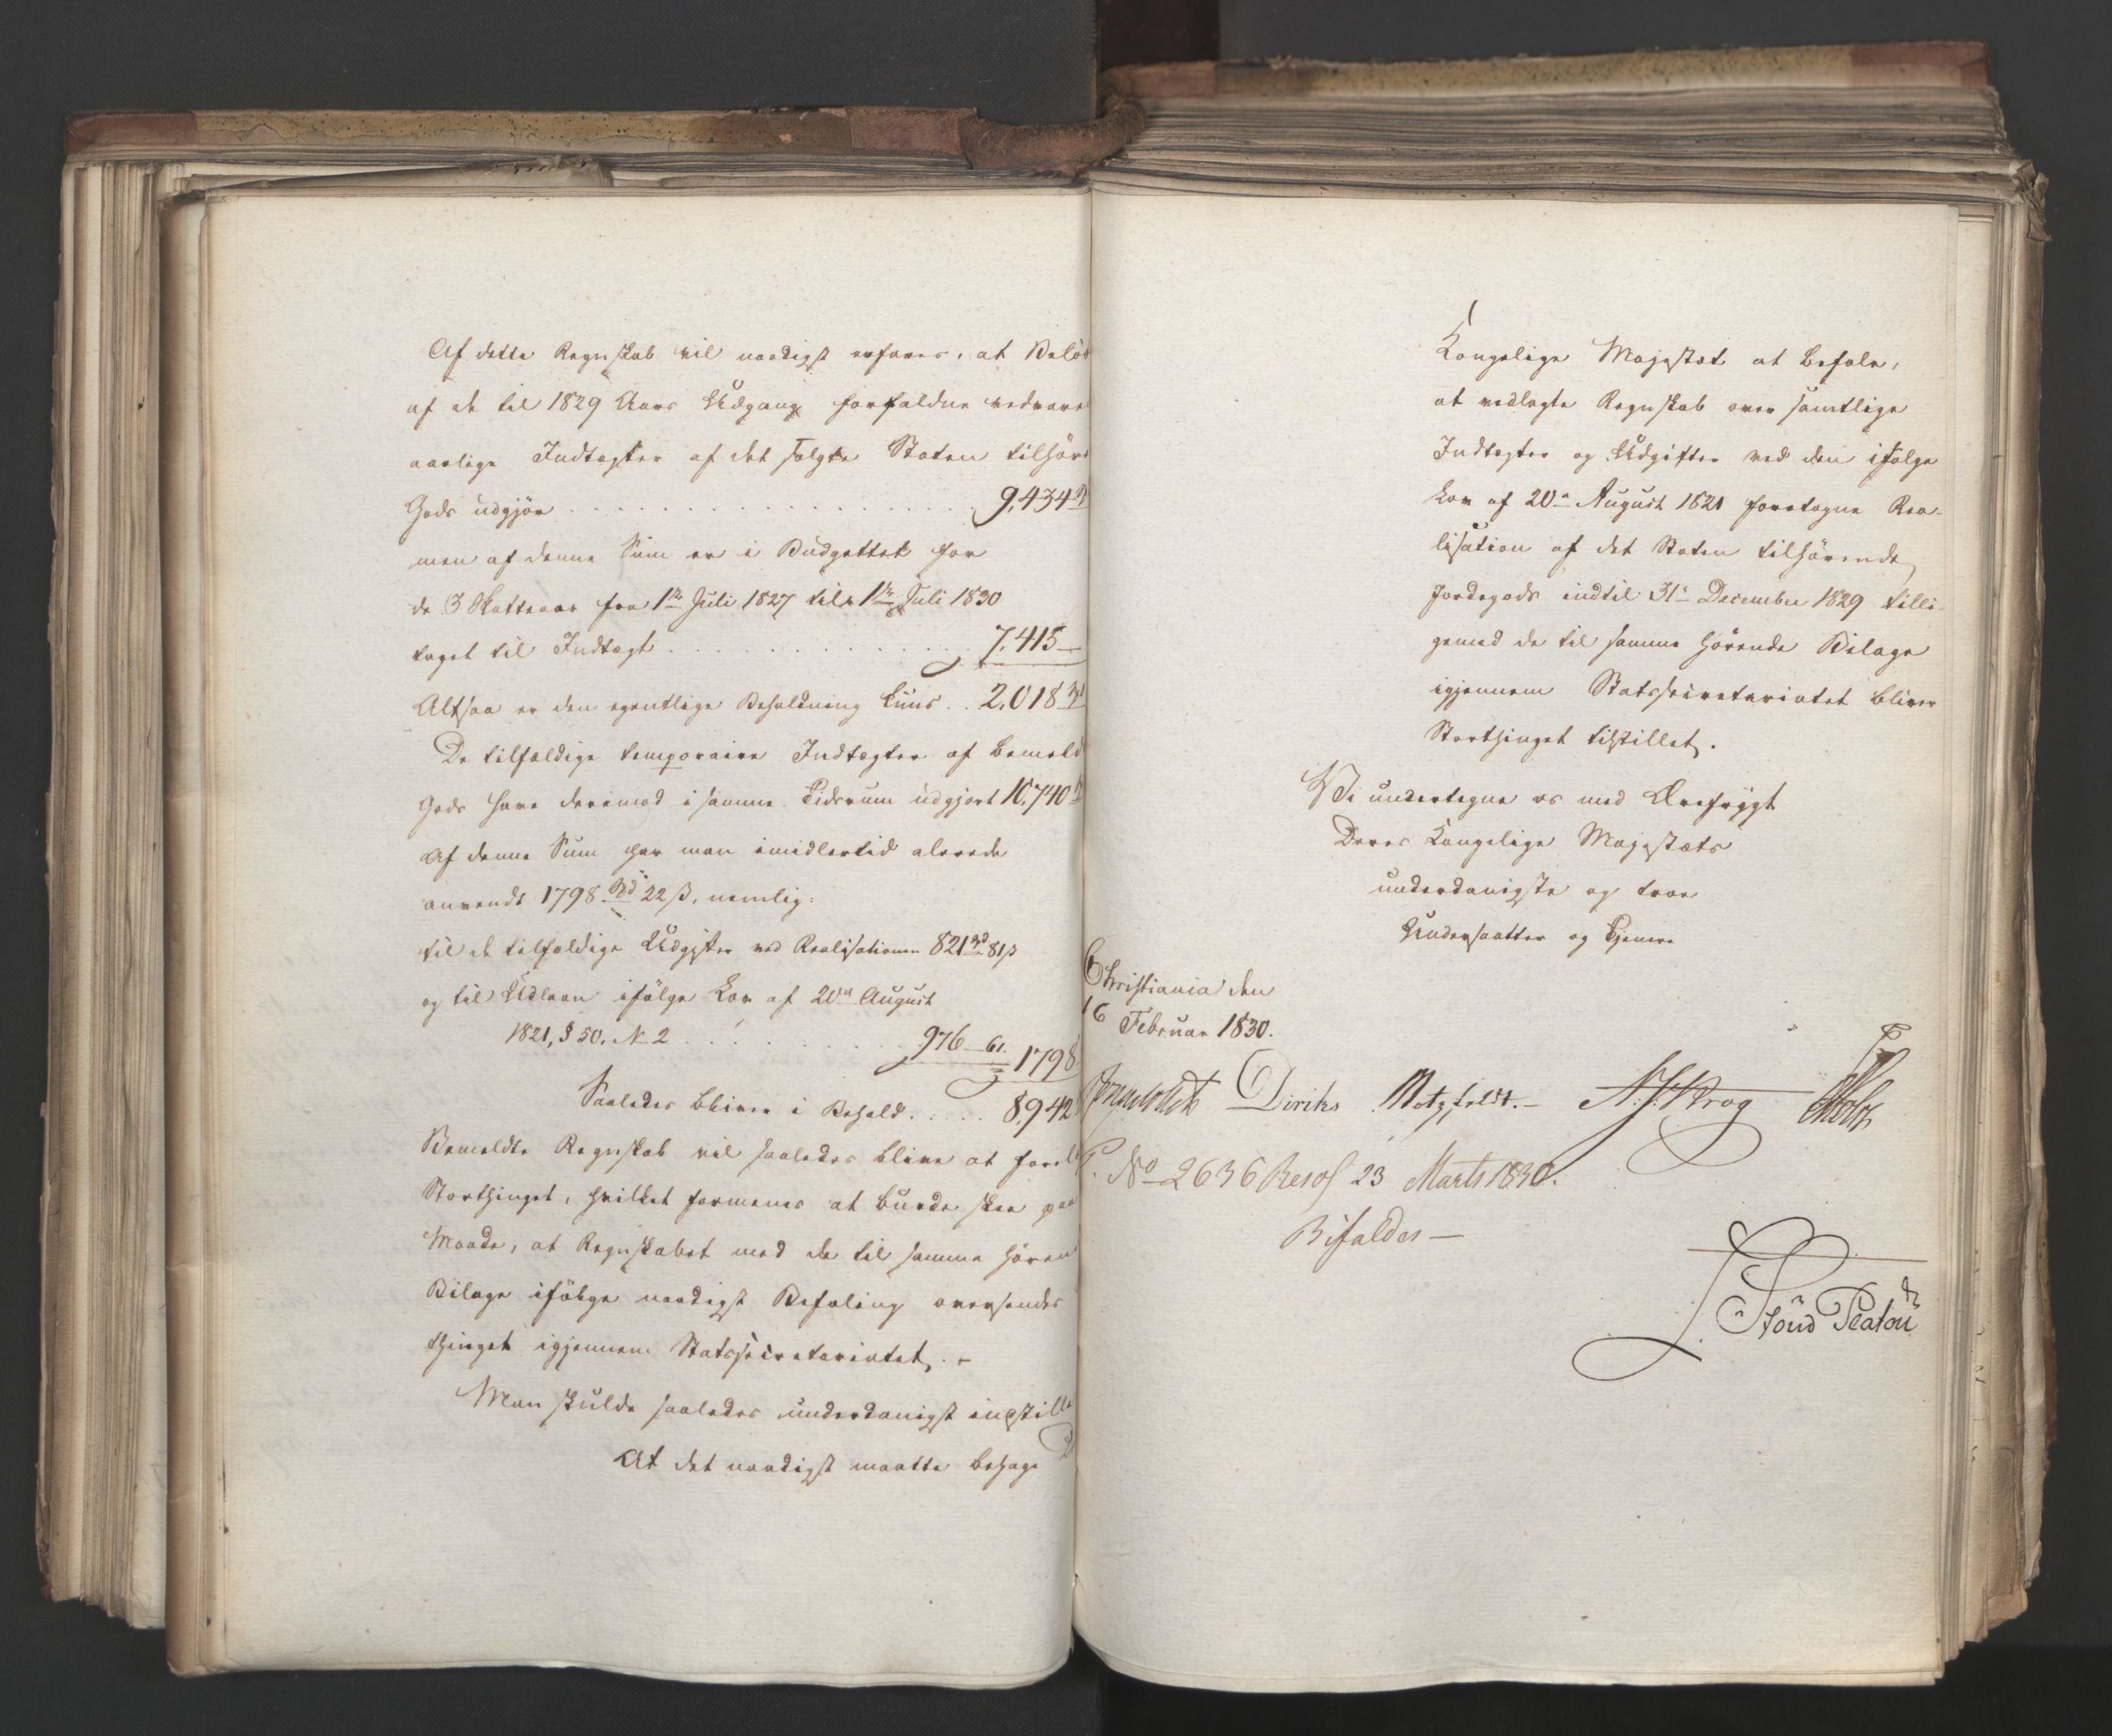 Af dette Regnskab vil naadigst erfares, at Belöb
af de til 1829 Aars Udgang forfaldne vedvare
aarlige Indtægter af det solgte Staten tilhöre
Gods udgjör . . . . . . . . . . 9,434
men af denne Sum er i Budgettet for
de 3 Skatteaar fra 1ste Juli 1827 til 1ste Juli 1830
taget til Indtægt . . . . . . . . 7,415 —
Altsaa er den egentlige Beholdning kuns . . 2,018
De tilfældige temporaire Indtægter af bemeld
Gods have derimod i samme Tidsrum udgjort 10,740
Af denne Sum har man imidlertid alerede
anvendt 1798 Spd 22 ß, nemlig:
til de tilfældige Udgifter ved Realisationen 821 Spd 81 ß
og til Udlaan ifölge Lov af 20de August
1821, § 50, N 2 . . . . . . 976 — 61.
1798
Saaledes bliver i Behold . . . . . 8,942
Bemeldte Regnskab vil saaledes blive at forel
Storthinget, hvilket formenes at burde skee paa
Maade, at Regnskabet med de til samme hören
Bilage ifölge naadigst Befaling oversendes
thinget igjennem Statssecretariatet. —
Man skulde saaledes underdanigst indstille
At det naadigst maatte behage
Kongelige Majestæt at befale,
at vedlagte Regnskab over samtlige
Indtægter og Udgifter ved den ifölge
Lov af 20de August 1821 foretagne Rea-
lisation af det Staten tilhörende
Jordegods indtil 31te December 1829 tilli-
gemed de til samme hörende Bilage
igjennem Statssecretariatet bliver
Storthinget tilstillet.
Vi undertegne os med Ærefrygt
Deres Kongelige Majestæts
underdanigste og troe
Undersaatter og Tjenere
Christiania den
16 Februar 1830.
Diriks Motzfeldt. — Krog Holst
P. No 2636 Resol 23 Marts 1830.
Bifaldes —
Stoud Platou